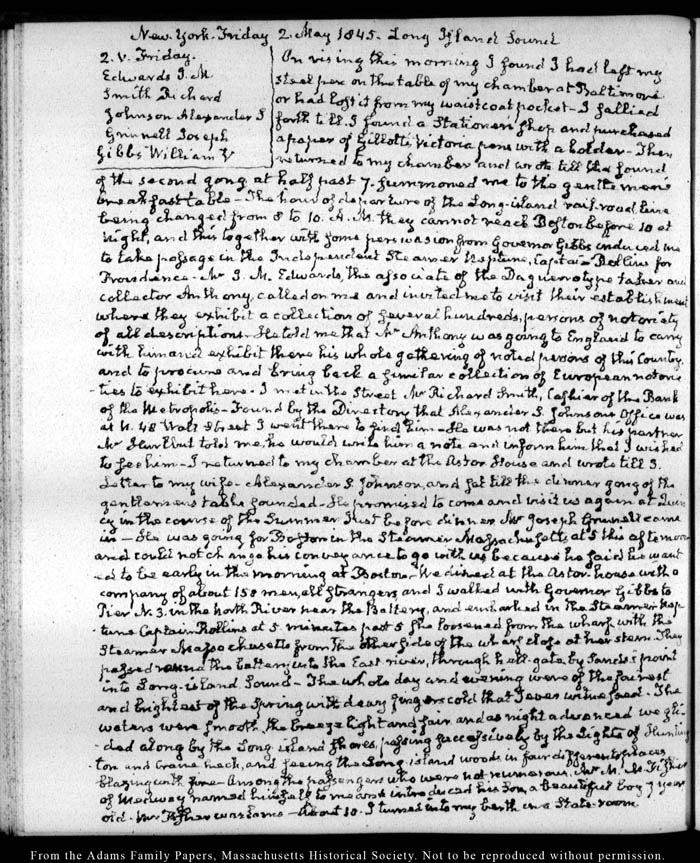 New-York. Friday 2. May 1845. Long Island Sound
2. V. Friday.
Edwards J. M
Smith Richard
Johnson Alexander S
Grinnell Joseph
Gibbs William
On rising this morning I found I had left my
steel pen on the table of my chamber at Baltimore
or had lost it from my waistcoat pocket - I sallied
forth till I found a Stationer's shop and purchased
a paper of Gillott's Victoria pens with a holder - Then
returned to my chamber and wrote till the sound
of the second gong at half past 7. summoned me to the gentlemen's
breakfast table - The hour of departure of the Long-island rail-road line
being changed from 8 to 10. A.M. they cannot reach Boston before 10 at
night, and this together with some persuasion from Governor Gibbs induced me
to take passage in the Independent Steamer Neptune, Captain Rollins for
Providence - Mr J. M. Edwards, the associate of the Daguerrotype taker and
collector Anthony, called on me and invited me to visit their establishment
where they exhibit a collection of several hundreds, persons of notoriety
of all descriptions - He told me that Mr Anthony was going to England to carry
with him and exhibit there his whole gathering of noted persons of this Country,
and to procure and bring back a similar collection of European notorie
-ties to exhibit here - I met in the street Mr Richard Smith, Cashier of the Bank
of the Metropolis - Found by the Directory that Alexander S. Johnson's Office was
at N. 48 Wall Street I went there to find him - He was not there but his partner
Mr told me, he would write him a note and inform him that I wished
to see him - I returned to my chamber at the Astor House and wrote till 3.
Letter to my wife - Alexander S Johnson, and sat till the dinner gong of the
gentlemens table sounded - He promised to come and visit us again at Quin
cy in the course of the Summer Just before dinner Mr Joseph Grinnell came
in - He was going for Boston in the Steamer Massachusetts at 5 this afternoon
and could not change his conveyance to go with us because he said he want
-ed to be early in the morning at Boston - We dined at the Astor-house with a
company of about 150 men, all strangers, and I walked with Governor Gibbs to
Pier N. 3. in the North River near the Battery, and embarked in the Steamer Nep-
tune Captain Rollins at 5 minutes past 5 she loosened from the wharf, with the
Steamer Massachusetts from the other side of the wharf close at her stern. They
passed round the battery into the East river, through hell-gate, by Sands's point
into Long-island Sound - The whole day and evening were of the fairest
and brightest of the Spring with a that I ever witnessed - The
waters were smooth, the breeze light and fair, and as night advanced we gli-
-ded along by the Long-island shores, passing successively by the Lights of Hunting
ton and Crane neck, and seeing the Long-island woods in four different places
blazing with fire - Among the passengers who were not numerous, Mr M. M. Fisher
of Medway named himself to me and introduced his son, a beautiful boy 7 years
old - Mr Fisher was lame - About 10. I turned into my berth in a State-room.
From the Adams Family Papers, Massachusetts Historical Society. Not to be reproduced without permission.